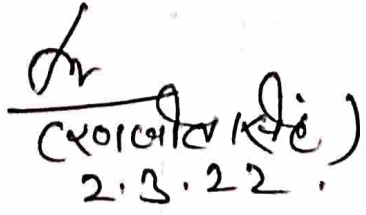 (रणजीत सिंह)
2.3.22.